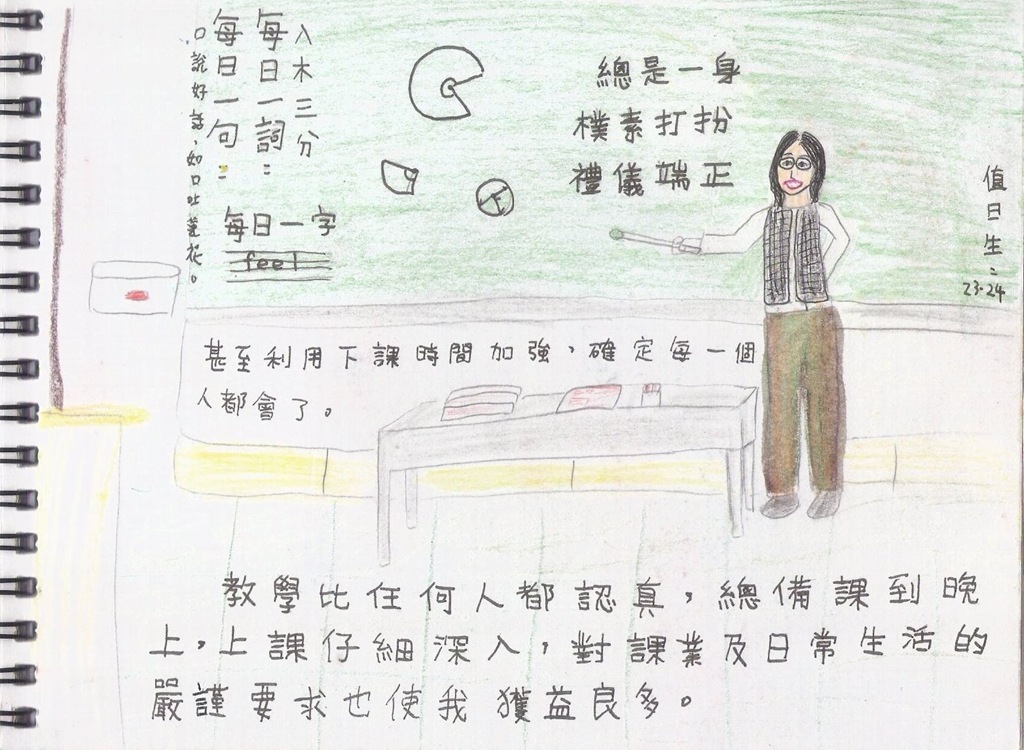 入木三分
每日一詞：
每日一句：
口說好話，如口吐蓮花。
每日一字
feel
總是一身
樸素打扮
禮儀端正
值日生：
23.24
甚至利用下課時間加強，確定每一個
人都會了。
教學比任何人都認真，總備課到晚
上，上課仔細深入，對課業及日常生活的
嚴謹要求也使我獲益良多。